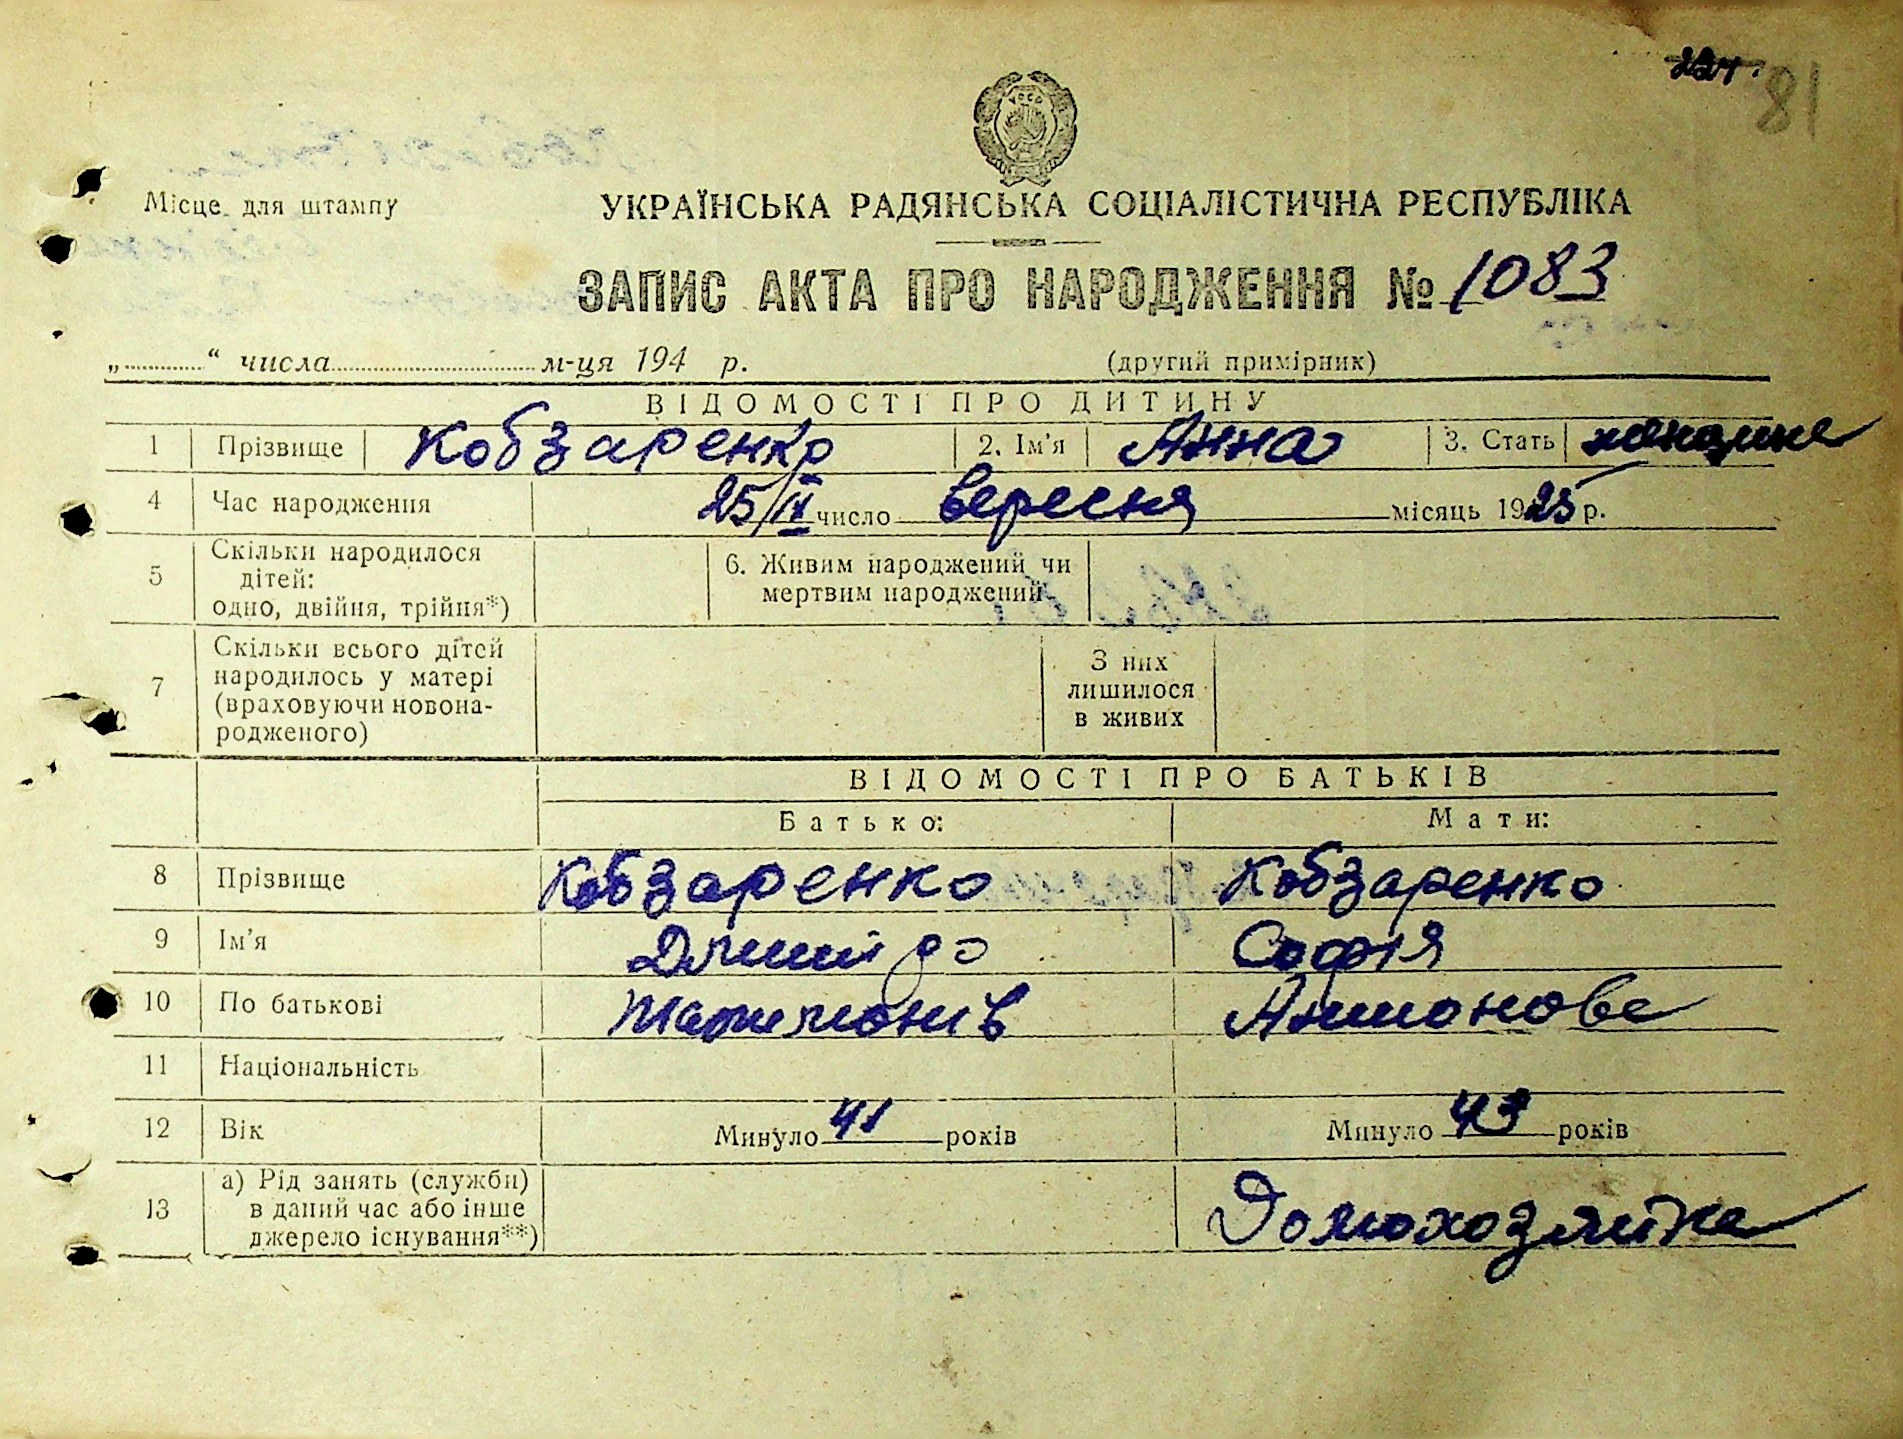 81
УССР
Місце для штампу
УКРАЇНСЬКА РАДЯНСЬКА СОЦІАЛІСТИЧНА РЕСПУБЛІКА
ЗАПИС АКТА ПРО НАРОДЖЕННЯ № 1083
„ “ числа м-ця 194 р. (другий примірник)
ВІДОМОСТІ ПРО ДИТИНУ
1 Прізвище Кобзаренко 2. Ім'я Анна 3. Стать
4 Час народження 25/IX число вересня місяць 1925 р.
5 Скільки народилося дітей: одно, двійня, трійня*) 6. Живим народжений чи мертвим народжений
7 Скільки всього дітей народилось у матері (враховуючи новонародженого) З них лишилося в живих
ВІДОМОСТІ ПРО БАТЬКІВ
Батько: Мати:
8 Прізвище Кобзаренко Кобзаренко
9 Ім'я Софія
10 По батькові Антонова
11 Національність
12 Вік Минуло 41 років Минуло 43 років
13 а) Рід занять (служби) в даний час або інше джерело існування**) Домохозяйка